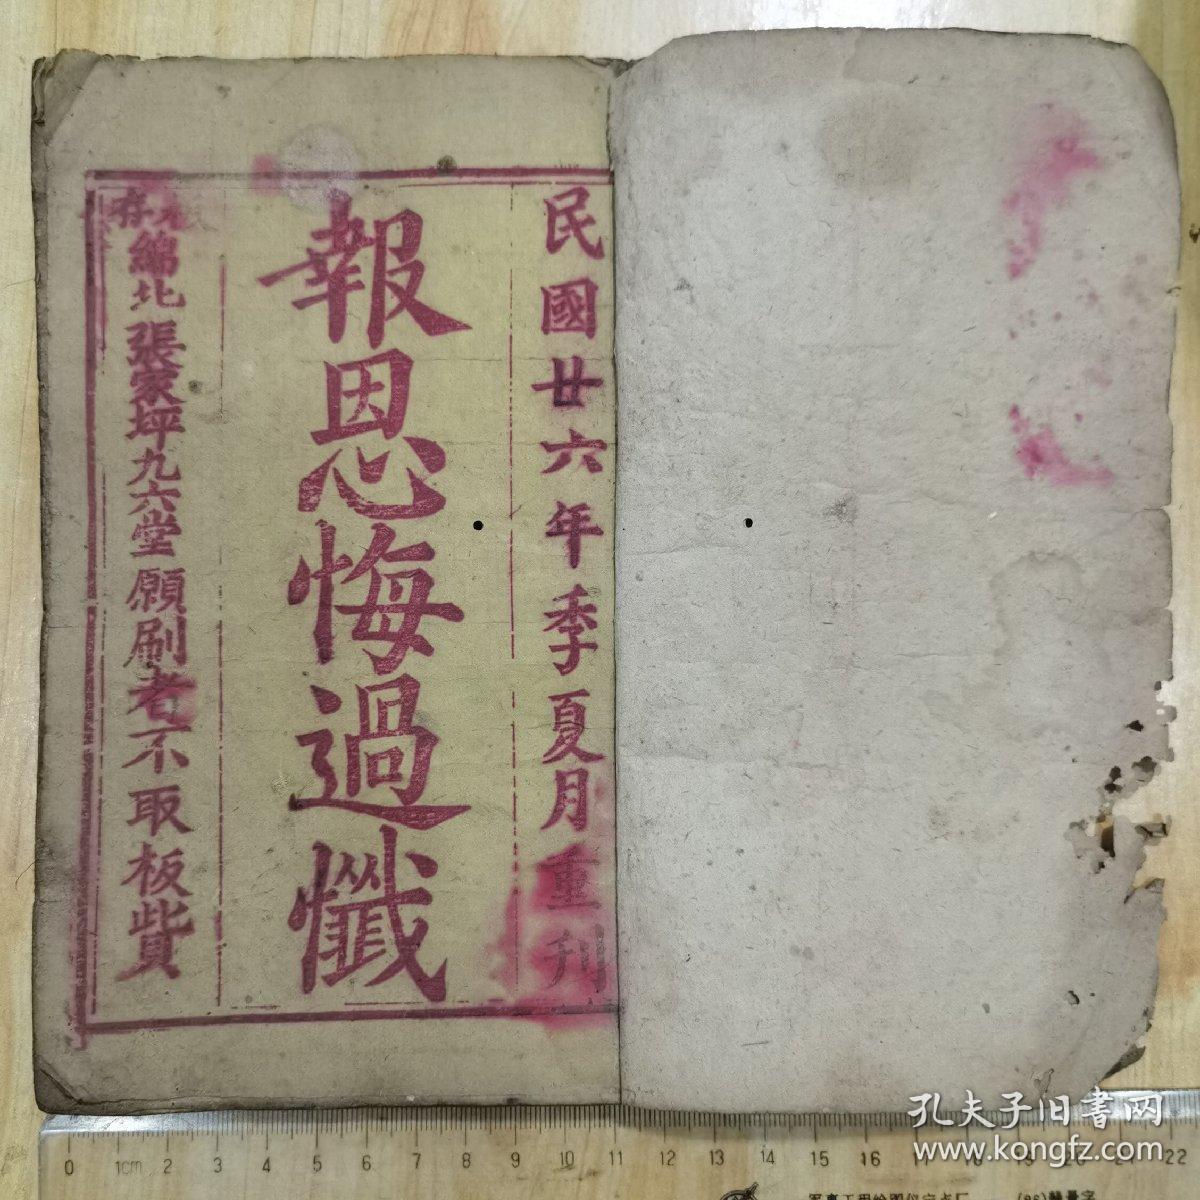 民國廿六年季夏月重刊
報恩悔過懺
板存
綿北張家坪九六堂願刷者不取板貲
孔夫子旧書网
www.kongfz.com
0 1cm 2 3 4 5 6 7 8 9 10 11 12 13 14 15 16 17 18 19 20 21 22